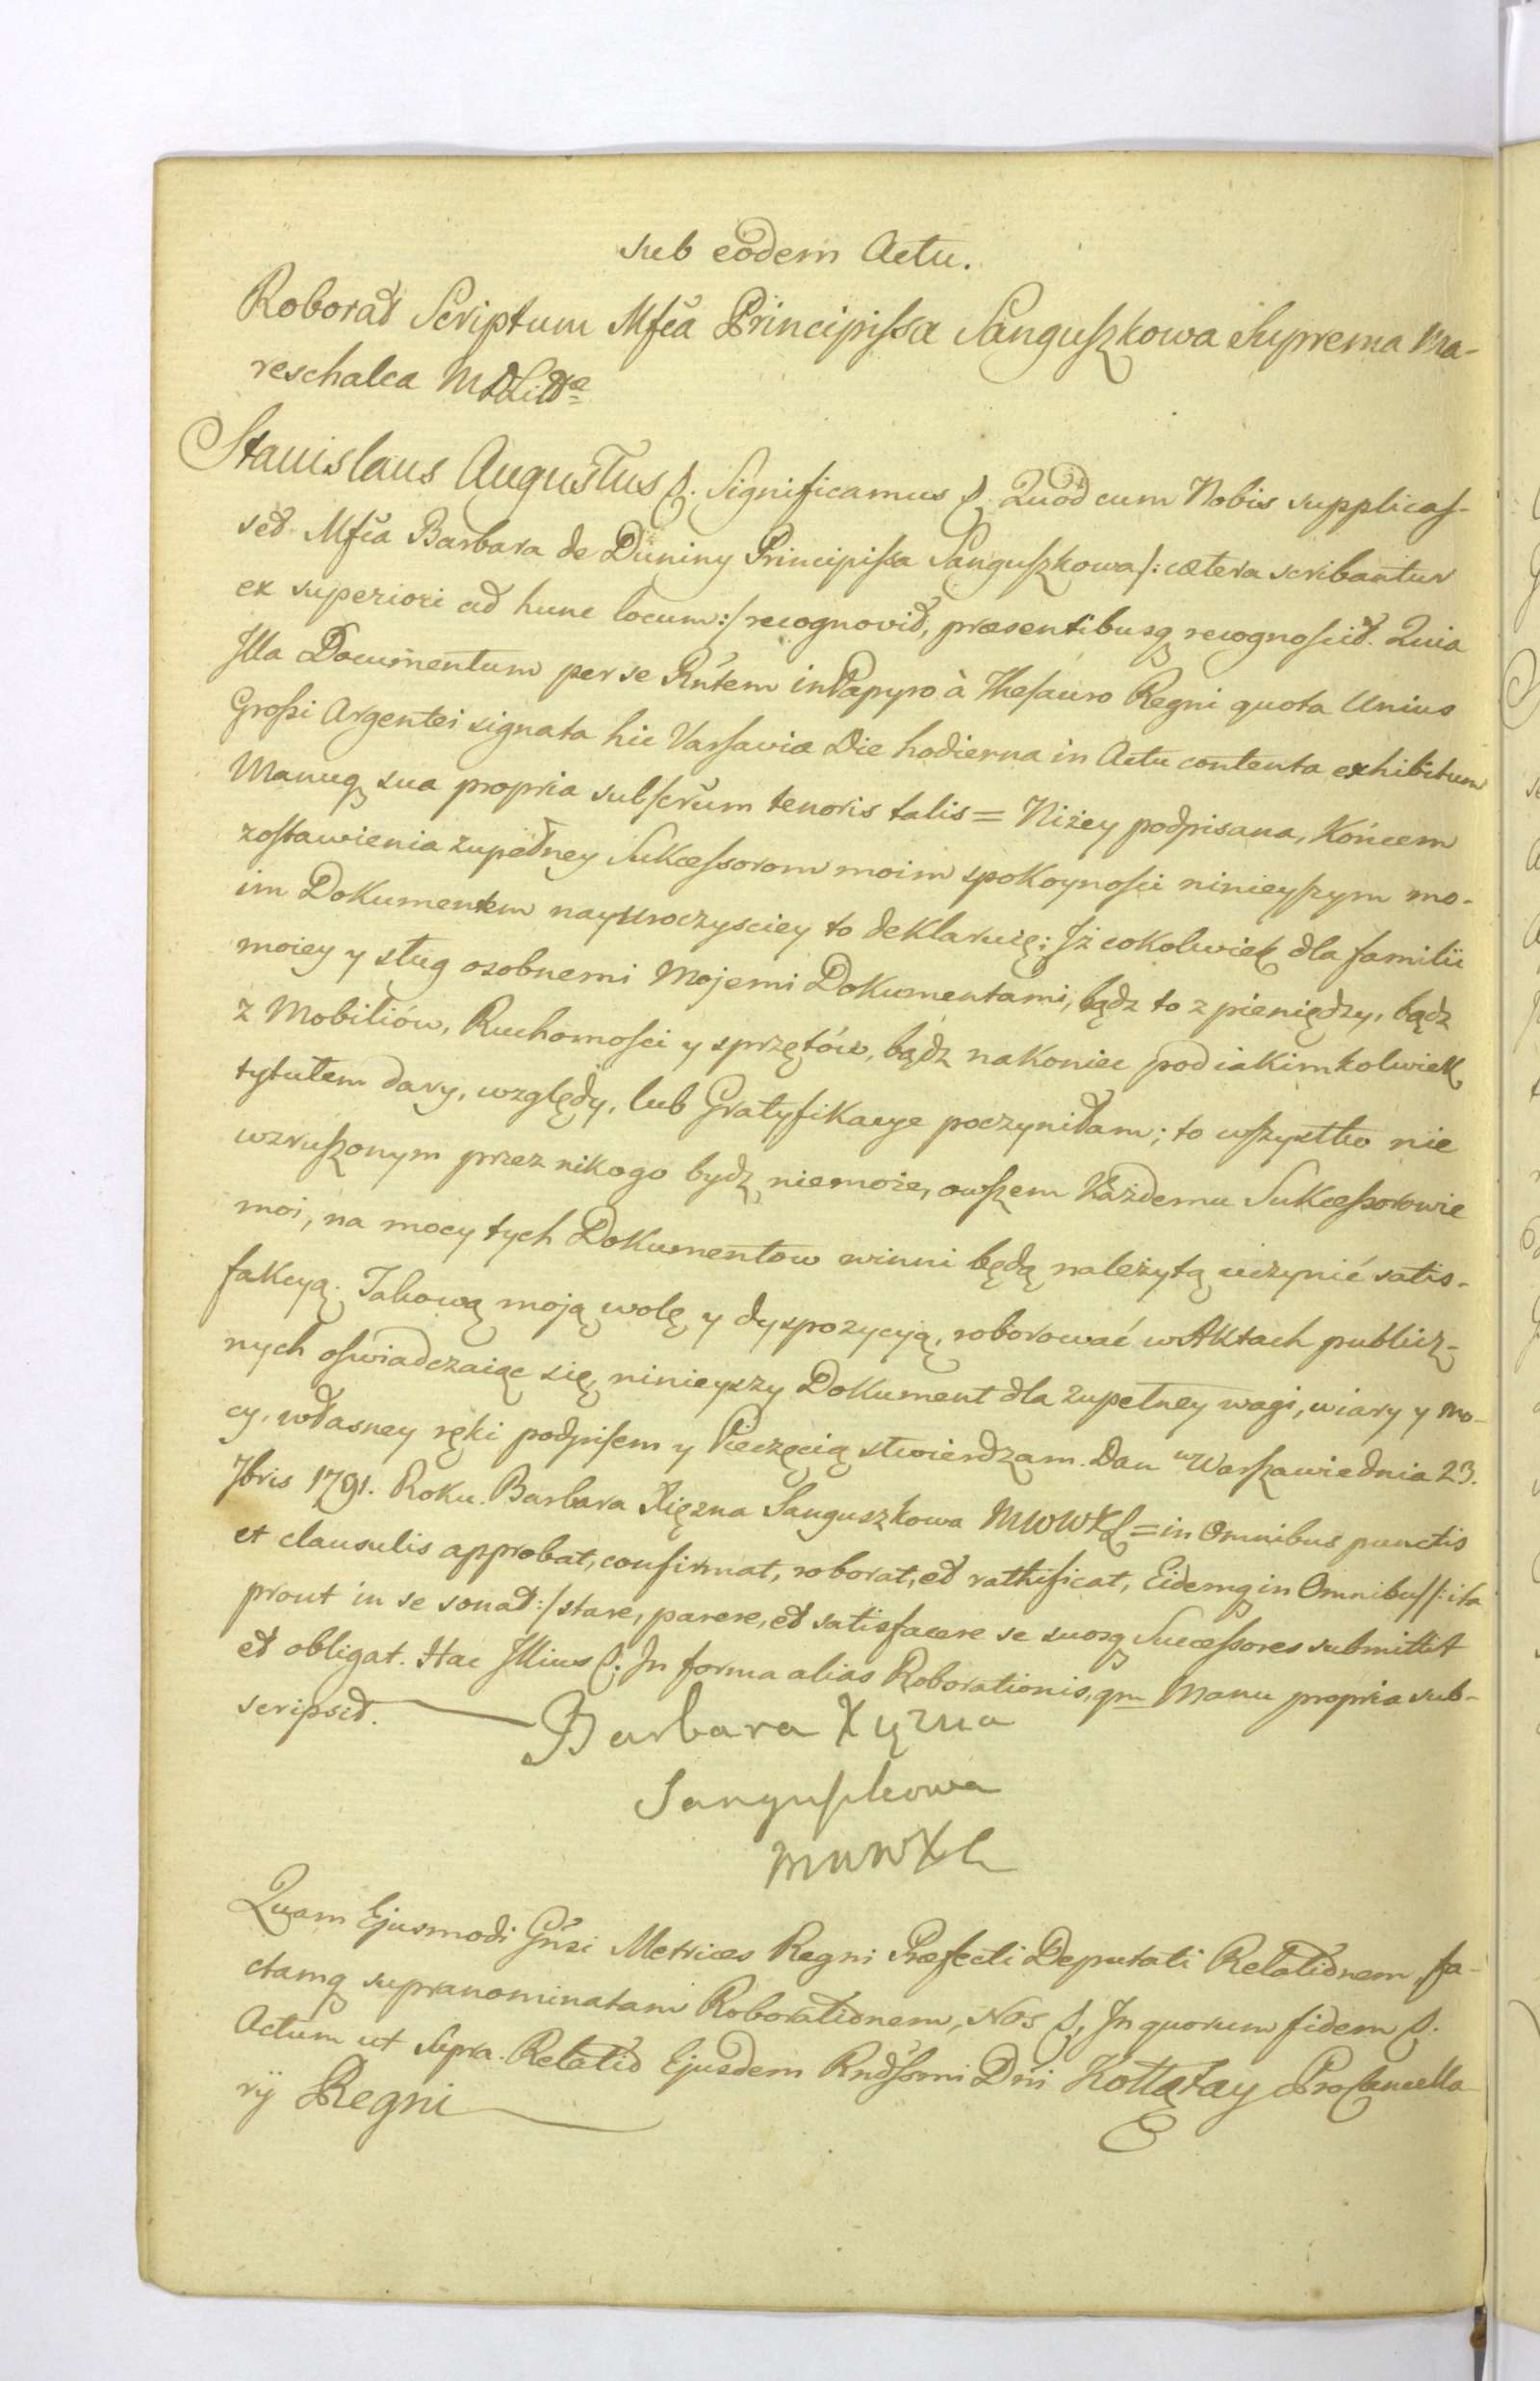 sub eodem Actu.
Roborat Scriptum Mfca Principissa Sanguszkowa Suprema Ma-
reschalca MDLittæ
Stanislaus Augustus &. Significamus &. Quod cum Nobis supplicas-
set Mfca Barbara de Duniny Principissa Sanguszkowa /: cætera scribantur
ex superiori ad hunc locum :/ recognovit, præsentibusq recognoscit. Quia
Illa Documentum per se Rntem in Papyro à Thesauro Regni quota Unius
Grossi Argentei signata hic Varsaviæ Die hodierna in Actu contenta exhibitum
Manuq sua propria subscrum tenoris talis = Niżey podpisana, Końcem
zostawienia zupełney Sukcessorom moim spokoynosci ninieyszym mo-
im Dokumentem nayuroczysciey to deklaruię; Iż cokolwiek dla familii
moiey y sług osobnemi Mojemi Dokumentami, bądz to z pieniędzy, bądz
z Mobiliów, Ruchomosci y sprzętów, bądz nakoniec pod iakimkolwiek
tytułem dary, względy, lub Gratyfikacye poczyniłam; to wszystko nie
wzruszonym przez nikogo bydz niemoże, owszem Każdemu Sukcessorowie
moi, na mocy tych Dokumentow winni będą należytą uczynić satis-
fakcyą. Takową moją wolę y dyspozycyją, roborować w Aktach publicz-
nych oswiadczaiąc się, ninieyszy Dokument dla zupełney wagi, wiary y mo-
cy, własney ręki podpisem y Pieczęcią stwierdzam. Dan w Warszawie dnia 23.
7bris 1791. Roku. Barbara Xiężna Sanguszkowa MWWXL = in Omnibus punctis
et clausulis approbat, confirmat, roborat, et rathificat, Eidemq in Omnibus /: ita
prout in se sonat :/ stare, parere, et satisfacere se suosq Successores submittit
et obligat. Hac Illius &. In forma alias Roborationis, qm Manu propria sub-
scripsit.
Barbara Xięzna
Sanguszkowa
MWWXL
Quam Ejusmodi Gnsi Metrices Regni Præfecti Deputati Relationem, fa-
ctamq supranominatam Roborationem, Nos &. In quorum fidem &.
Actum ut Supra. Relatio Ejusdem Rndssmi Dni Kołłątay ProCancella-
rij Regni